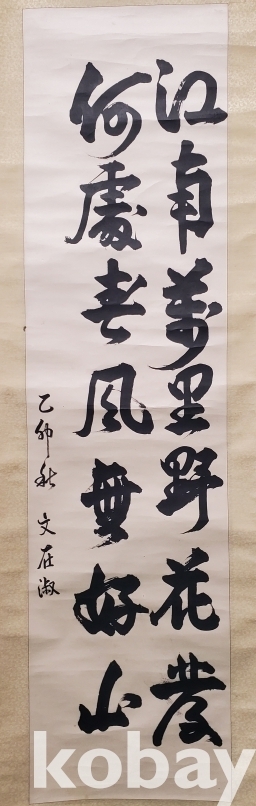 江南萬里野花發
何處春風無好山
乙卯秋 文在淑
kobay